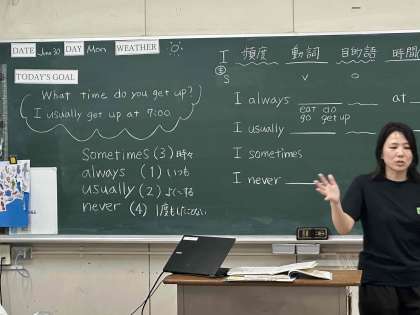 DATE Jun 30 DAY Mon WEATHER
TODAY'S GOAL
What time do you get up?
I usually get up at 7:00
Sometimes (3) 時々
always (1) いつも
usually (2) よく~する
never (4) 1度も~ない
I 頻度 動詞 目的語 時間
主
S V O
I always at
eat do
go get up
I usually
I sometimes
I never